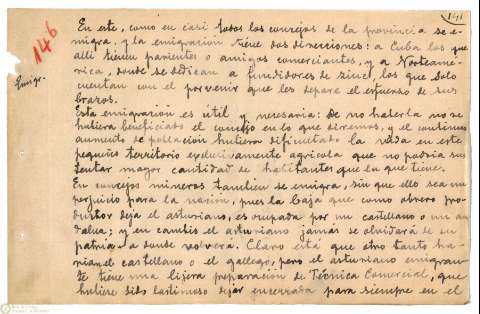 141
146
Emigr.
En este, como en casi todos los concejos de la provincia se e-
migra, y la emigración tiene dos direcciones: a Cuba los que
allí tienen parientes o amigos comerciantes, y a Norteamé-
rica, donde se dedican a fundidores de zinc, los que solo
cuentan con el porvenir que les depare el esfuerzo de sus
brazos.
Esta emigración es útil y necesaria: de no haberla no se
hubiera beneficiado el concejo en lo que diremos, y el continuo
aumento de población hubiera dificultado la vida en este
pequeño territorio exclusivamente agrícola que no podría sus-
tentar mayor cantidad de habitantes que la que tiene.
En concejos mineros también se emigra, sin que ello sea un
perjuicio para la nación, pues la baja que como obrero pro-
ductor deja el asturiano, es ocupada por un castellano o un an-
daluz; y en cambio el asturiano jamás se olvidará de su
patria a donde volverá. Claro está que otro tanto ha-
rían el castellano o el gallego, pero el asturiano emigran-
te tiene una lijera preparación de Técnica Comercial, que
hubiese sido lastimoso dejar encerrada para siempre en el